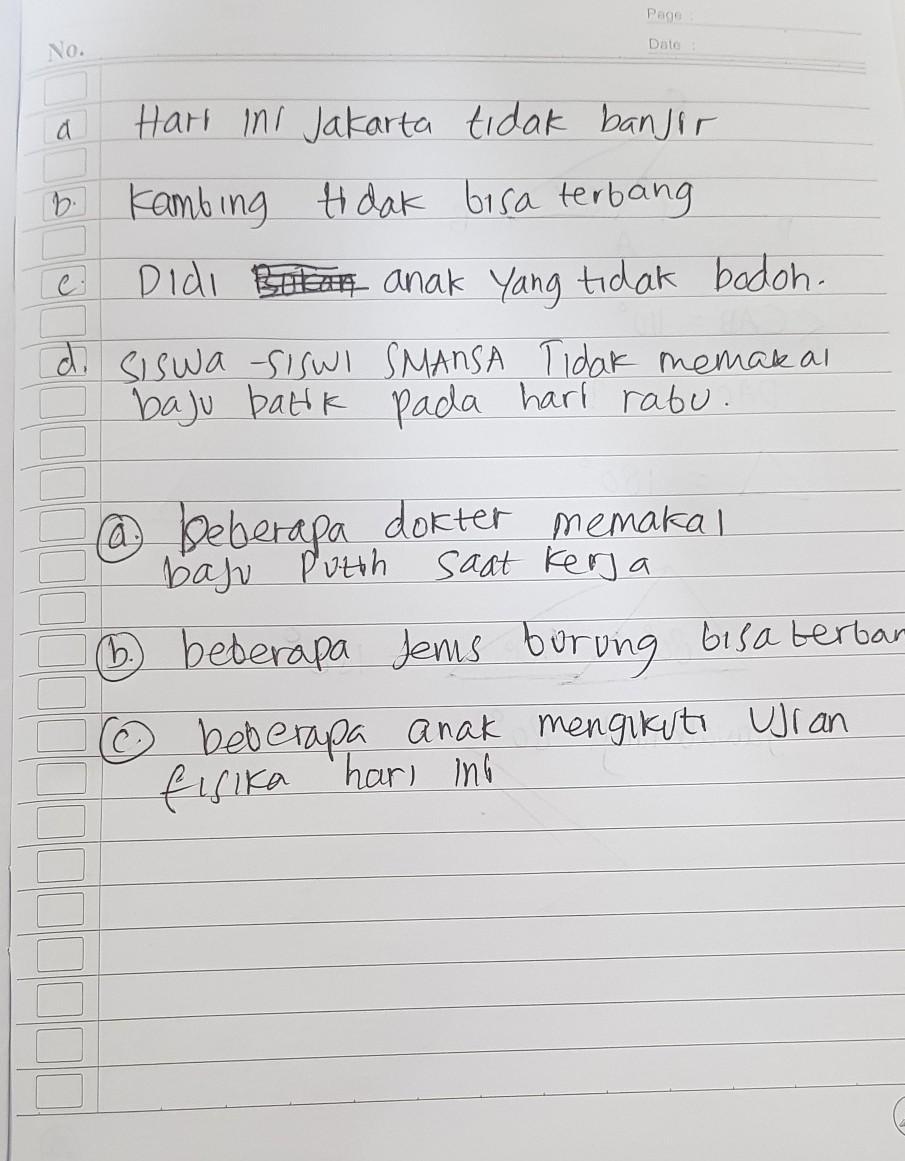 Page :
Date :
No.
a Hari ini Jakarta tidak banjir
b. Kambing tidak bisa terbang
c. Didi anak yang tidak bodoh.
d. Siswa - siswi SMANSA Tidak memakai
baju batik pada hari rabu.
a. beberapa dokter memakai
baju Putih saat kerja
b. beberapa Jenis burung bisa terban
c. beberapa anak mengikuti Ujian
fisika hari ini